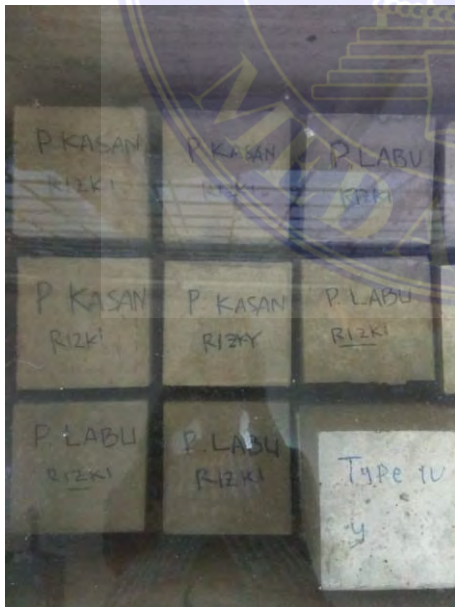 P. KASAN
RIZKI
P. KASAN
RIZKI
P. LABU
RIZKI
P. KASAN
RIZKI
P. KASAN
RIZKY
P. LABU
RIZKI
P. LABU
RIZKI
P. LABU
RIZKI
Type IV
y